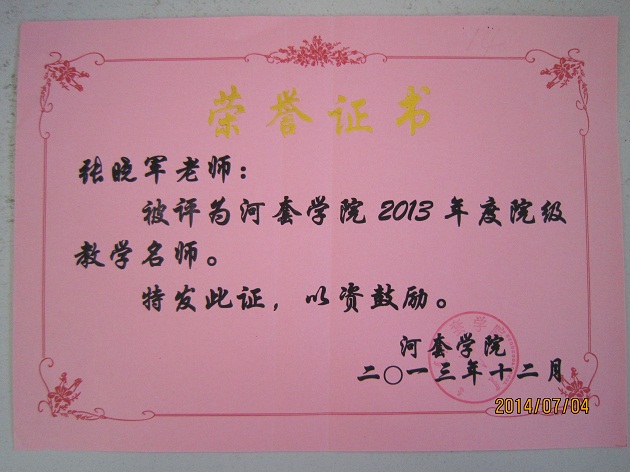 荣誉证书
张晓军老师：
被评为河套学院2013年度院级
教学名师。
特发此证，以资鼓励。
河套学院
二〇一三年十二月
2014/07/04